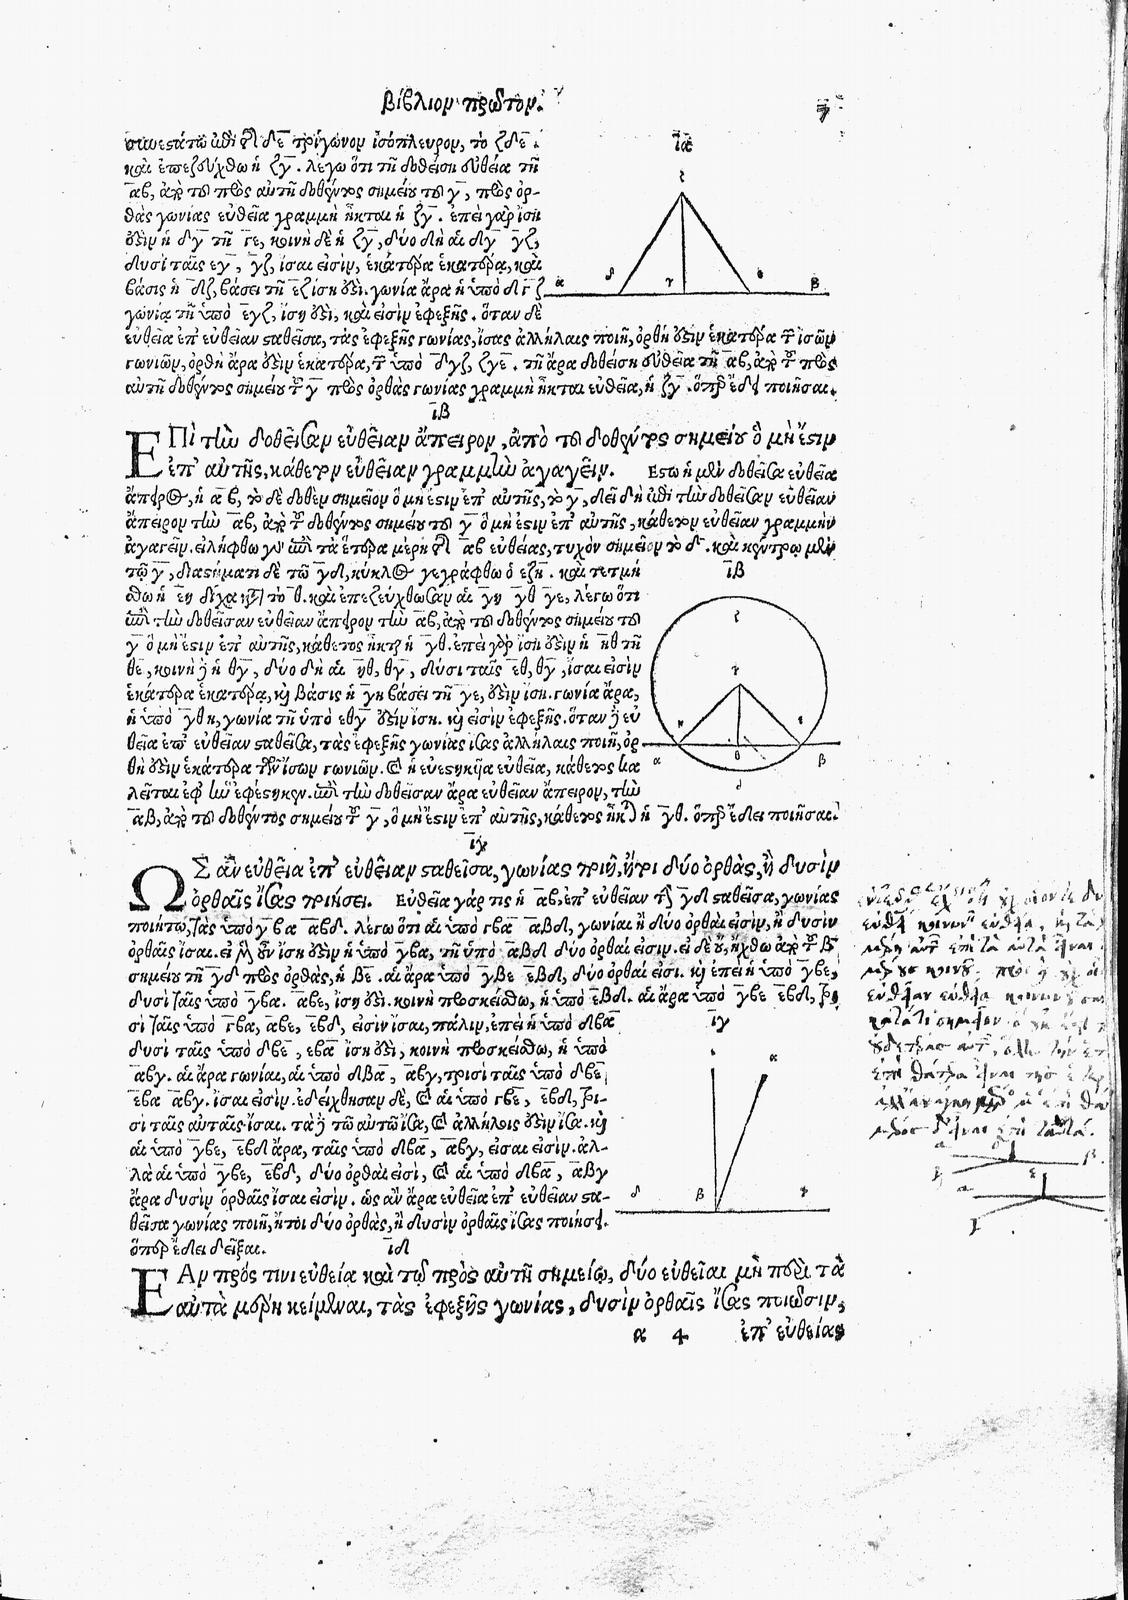 βίβλιον πρῶτον.
7
συνεστάτω ἐπὶ τῆς δε τρίγωνον ἰσόπλευρον, τὸ ζδε.
καὶ ἐπεζεύχθω ἡ ζγ. λέγω ὅτι τῇ δοθείσῃ εὐθείᾳ τῇ
αβ, ἀπὸ τοῦ πρὸς αὐτῇ δοθέντος σημείου τοῦ γ, πρὸς ὀρ-
θὰς γωνίας εὐθεῖα γραμμὴ ἦκται ἡ ζγ. ἐπεὶ γὰρ ἴση
ὅζιν ἡ δγ τῇ γε, κοινὴ δὲ ἡ ζγ, δύο δὴ αἱ δγ γζ,
δυσὶ ταῖς εγ, γζ, ἴσαι εἰσὶν, ἑκατέρα ἑκατέρᾳ, καὶ
βάσις ἡ δζ, βάσει τῇ εζ ἴση ἐστί. γωνία ἄρα ἡ ὑπὸ δγζ
γωνίᾳ τῇ ὑπὸ εγζ, ἴση ἐστὶ, καὶ εἰσὶν ἐφεξῆς. ὅταν δὲ
εὐθεῖα ἐπ' εὐθεῖαν σταθεῖσα, τὰς ἐφεξῆς γωνίας, ἴσας ἀλλήλαις ποιῇ, ὀρθή ἐστιν ἑκατέρα τῶν ἴσων
γωνιῶν, ὀρθὴ ἄρα ἐστὶν ἑκατέρα, τῶν ὑπὸ δγζ, ζγε. τῇ ἄρα δοθείσῃ εὐθείᾳ τῇ αβ, ἀπὸ τοῦ πρὸς
αὐτῇ δοθέντος σημείου τοῦ γ πρὸς ὀρθὰς γωνίας γραμμὴ ἦκται εὐθεῖα, ἡ ζγ. ὅπερ ἔδει ποιῆσαι.
ια
ζ
α δ γ ε β
ιβ
ΕΠὶ τὴν δοθεῖσαν εὐθεῖαν ἄπειρον, ἀπὸ τοῦ δοθέντος σημείου ὃ μή ἐστιν
ἐπ' αὐτῆς, κάθετον εὐθεῖαν γραμμὴν ἀγαγεῖν. Εστω ἡ μὲν δοθεῖσα εὐθεῖα
ἄπειρος, ἡ αβ, τὸ δὲ δοθὲν σημεῖον ὃ μή ἐστιν ἐπ' αὐτῆς, τὸ γ, δεῖ δὴ ἐπὶ τὴν δοθεῖσαν εὐθεῖαν
ἄπειρον τὴν αβ, ἀπὸ τοῦ δοθέντος σημείου τοῦ γ ὃ μή ἐστιν ἐπ' αὐτῆς, κάθετον εὐθεῖαν γραμμὴν
ἀγαγεῖν. εἰλήφθω γὰρ ἐπὶ τὰ ἕτερα μέρη τῆς αβ εὐθείας, τυχὸν σημεῖον τὸ δ. καὶ κέντρῳ μὲν
τῷ γ, διαστήματι δὲ τῷ γδ, κύκλος γεγράφθω ὁ εζη. καὶ τετμή
σθω ἡ εη δίχα κατὰ τὸ θ. καὶ ἐπεζεύχθωσαν αἱ γη γθ γε, λέγω ὅτι
ἐπὶ τὴν δοθεῖσαν εὐθεῖαν ἄπειρον τὴν αβ, ἀπὸ τοῦ δοθέντος σημείου τοῦ
γ ὃ μή ἐστιν ἐπ' αὐτῆς, κάθετος ἦκται ἡ γθ. ἐπεὶ γὰρ ἴση ἐστὶν ἡ ηθ τῇ
θε, κοινὴ δὲ ἡ θγ, δύο δὴ αἱ ηθ, θγ, δύσι ταῖς εθ, θγ, ἴσαι εἰσὶν
ἑκατέρα ἑκατέρᾳ, καὶ βάσις ἡ γη βάσει τῇ γε, ἐστὶν ἴση. γωνία ἄρα,
ἡ ὑπὸ γθη, γωνίᾳ τῇ ὑπὸ εθγ ἐστὶν ἴση. καὶ εἰσὶν ἐφεξῆς. ὅταν δὲ εὐ
θεῖα ἐπ' εὐθεῖαν σταθεῖσα, τὰς ἐφεξῆς γωνίας ἴσας ἀλλήλαις ποιῇ, ὀρ
θή ἐστιν ἑκατέρα τῶν ἴσων γωνιῶν. καὶ ἡ εὐεστηκῆα εὐθεῖα, κάθετος κα
λεῖται ἐφ' ἣν ἐφέστηκεν. ἐπὶ τὴν δοθεῖσαν ἄρα εὐθεῖαν ἄπειρον, τὴν
αβ, ἀπὸ τοῦ δοθέντος σημείου τοῦ γ, ὃ μή ἐστιν ἐπ' αὐτῆς, κάθετος ἦκται ἡ γθ. ὅπερ ἔδει ποιῆσαι.
ιβ
ζ
γ
η ε
α θ β
δ
ιγ
ΩΣ ἂν εὐθεῖα ἐπ' εὐθεῖαν σταθεῖσα, γωνίας ποιῇ, ἤτοι δύο ὀρθὰς, ἢ δυσὶν
ὀρθαῖς ἴσας ποιήσει. Εὐθεῖα γάρ τις ἡ αβ, ἐπ' εὐθεῖαν τὴν γδ σταθεῖσα, γωνίας
ποιήτω, τὰς ὑπὸ γβα αβδ. λέγω ὅτι αἱ ὑπὸ γβα αβδ, γωνίαι ἢ δύο ὀρθαί εἰσιν, ἢ δυσὶν
ὀρθαῖς ἴσαι. εἰ μὲν οὖν ἴση ἐστὶν ἡ ὑπὸ γβα, τῇ ὑπὸ αβδ δύο ὀρθαί εἰσιν. εἰ δὲ οὔ, ἤχθω ἀπὸ τοῦ β
σημείου τῇ γδ πρὸς ὀρθὰς, ἡ βε. αἱ ἄρα ὑπὸ γβε εβδ, δύο ὀρθαί εἰσι. καὶ ἐπεὶ ἡ ὑπὸ γβε,
δυσὶ ταῖς ὑπὸ γβα. αβε, ἴση ἐστὶ. κοινὴ προσκείσθω, ἡ ὑπὸ εβδ. αἱ ἄρα ὑπὸ γβε εβδ, τρι
σὶ ταῖς ὑπὸ γβα, αβε, εβδ, εἰσὶν ἴσαι, πάλιν, ἐπεὶ ἡ ὑπὸ δβα
δυσὶ ταῖς ὑπὸ δβε, εβα ἴση ἐστὶ, κοινὴ προσκείσθω, ἡ ὑπὸ
αβγ. αἱ ἄρα γωνίαι, αἱ ὑπὸ δβα, αβγ, τρισὶ ταῖς ὑπὸ δβε
εβα αβγ. ἴσαι εἰσὶν. ἐδείχθησαν δὲ, καὶ αἱ ὑπὸ γβε, εβδ, τρι-
σὶ ταῖς αὐταῖς ἴσαι. τὰ δὲ τῷ αὐτῷ ἴσα, καὶ ἀλλήλοις ἐστὶν ἴσα. καὶ
αἱ ὑπὸ γβε, εβδ ἄρα, ταῖς ὑπὸ δβα, αβγ, εἴσαι εἰσίν. ἀλ-
λὰ αἱ ὑπὸ γβε, εβδ, δύο ὀρθαί εἰσι, καὶ αἱ ὑπὸ δβα, αβγ
ἄρα δυσὶν ὀρθαῖς ἴσαι εἰσίν. ὡς ἂν ἄρα εὐθεῖα ἐπ' εὐθεῖαν στα-
θεῖσα γωνίας ποιῇ, ἤτοι δύο ὀρθὰς, ἢ δυσὶν ὀρθαῖς ἴσας ποιήσει.
ὅπερ ἔδει δεῖξαι.
ιγ
ε α
δ β γ
ιδ
ΕΑν πρός τινι εὐθείᾳ καὶ τῷ πρὸς αὐτῇ σημείῳ, δύο εὐθεῖαι μὴ περὶ τὰ
αὐτὰ μέρη κείμεναι, τὰς ἐφεξῆς γωνίας, δυσὶν ὀρθαῖς ἴσας ποιῶσιν,
α 4 ἐπ' εὐθείας